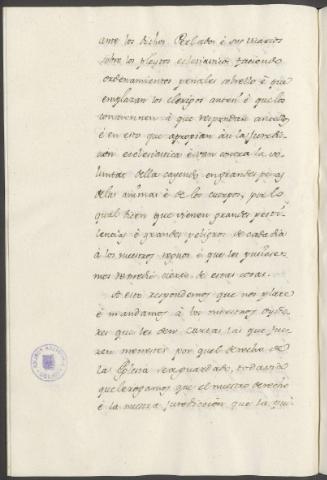 ante los dichos Perlados è sus vicarios
sobre los pleytos eclesiasticos faciendo
ordenamientos penales sobrello è que
emplazan los clerigos anten è que los
constrinnen à que respondan antellos
è en esto que apropian ási la Juredi-
cion ecclesiastica è van contra la vo-
luntat della cayendo en grandes penas
de las animas è de los cuerpos, por lo
qual dicen que vienen grandes pesti-
lencias è grandes peligros de cada dia
à los nuestros regnos è que les quisiese-
mos de remedio cierto de estas cosas.
A esto respondemos que nos place
è mandamos à los nuestros Oydo-
res que les den cartas las que fue-
ren menester por que el derecho de
la Iglesia sea guardado, todavia
que les rogamos que el nuestro derecho
è la nuestra juredicción que la qui-